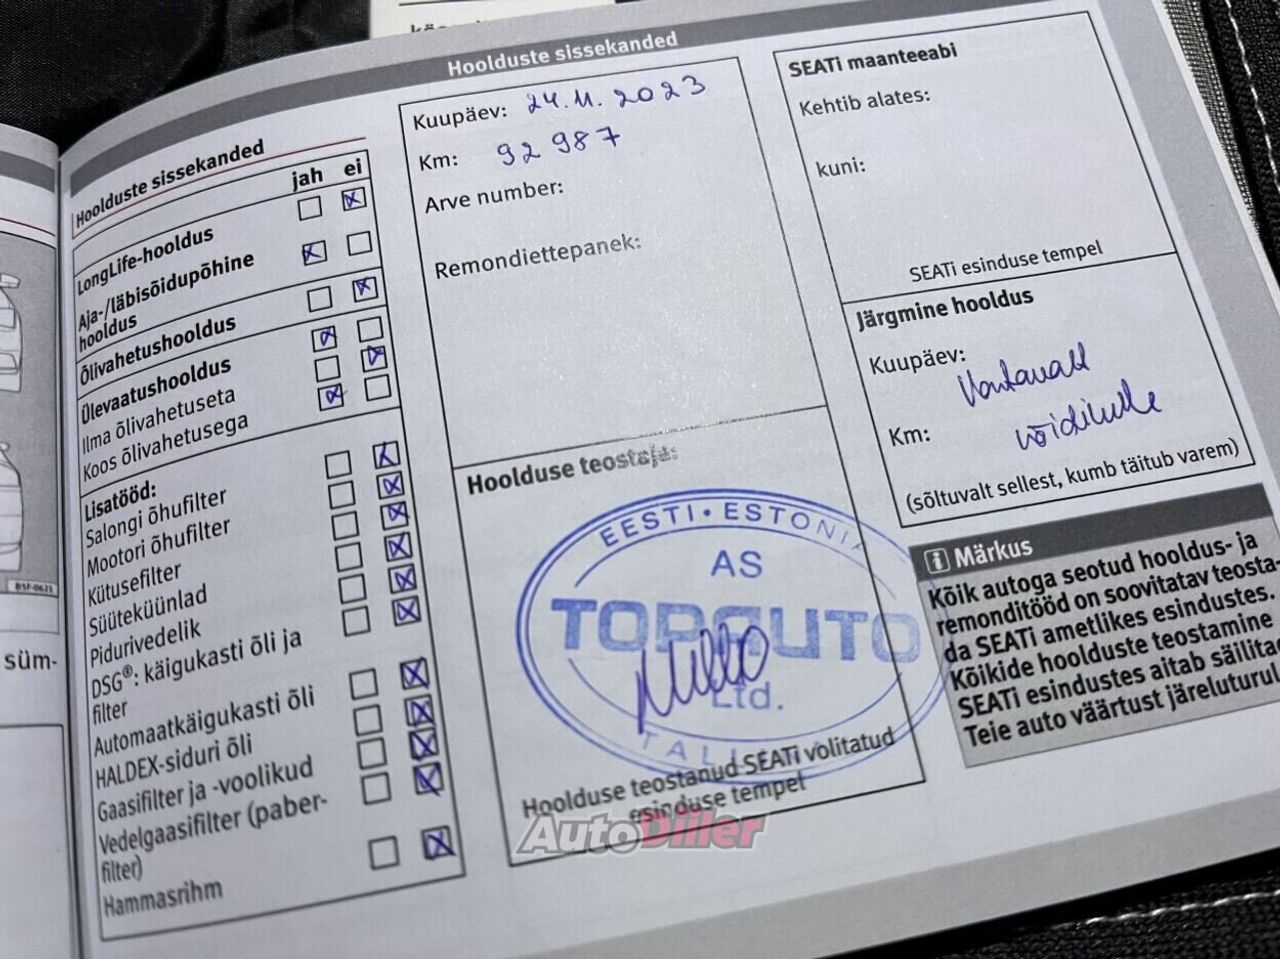 Hoolduste sissekanded
Hoolduste sissekanded
jah ei
LongLife-hooldus
Aja-/läbisõidupõhine
hooldus
Õlivahetushooldus
Ülevaatushooldus
Ilma õlivahetuseta
Koos õlivahetusega
Lisatööd:
Salongi õhufilter
Mootori õhufilter
Kütusefilter
Süüteküünlad
Pidurivedelik
DSG®: käigukasti õli ja
filter
Automaatkäigukasti õli
HALDEX-siduri õli
Gaasifilter ja -voolikud
Vedelgaasifilter (paber-
filter)
Hammasrihm
Kuupäev: 24.11.2023
Km: 92 987
Arve number:
Remondiettepanek:
Hoolduse teostaja:
EESTI • ESTONIA
AS
TOPAUTO
Ltd.
Hoolduse teostanud SEATi volitatud
esinduse tempel
SEATi maanteeabi
Kehtib alates:
kuni:
SEATi esinduse tempel
Järgmine hooldus
Kuupäev: Vastavalt
Km: näidikule
(sõltuvalt sellest, kumb täitub varem)
i Märkus
Kõik autoga seotud hooldus- ja
remonditööd on soovitatav teosta-
da SEATi ametlikes esindustes.
Kõikide hoolduste teostamine
SEATi esindustes aitab säilitada
Teie auto väärtust järelturul
süm-
BSF-0621
AutoDiiler